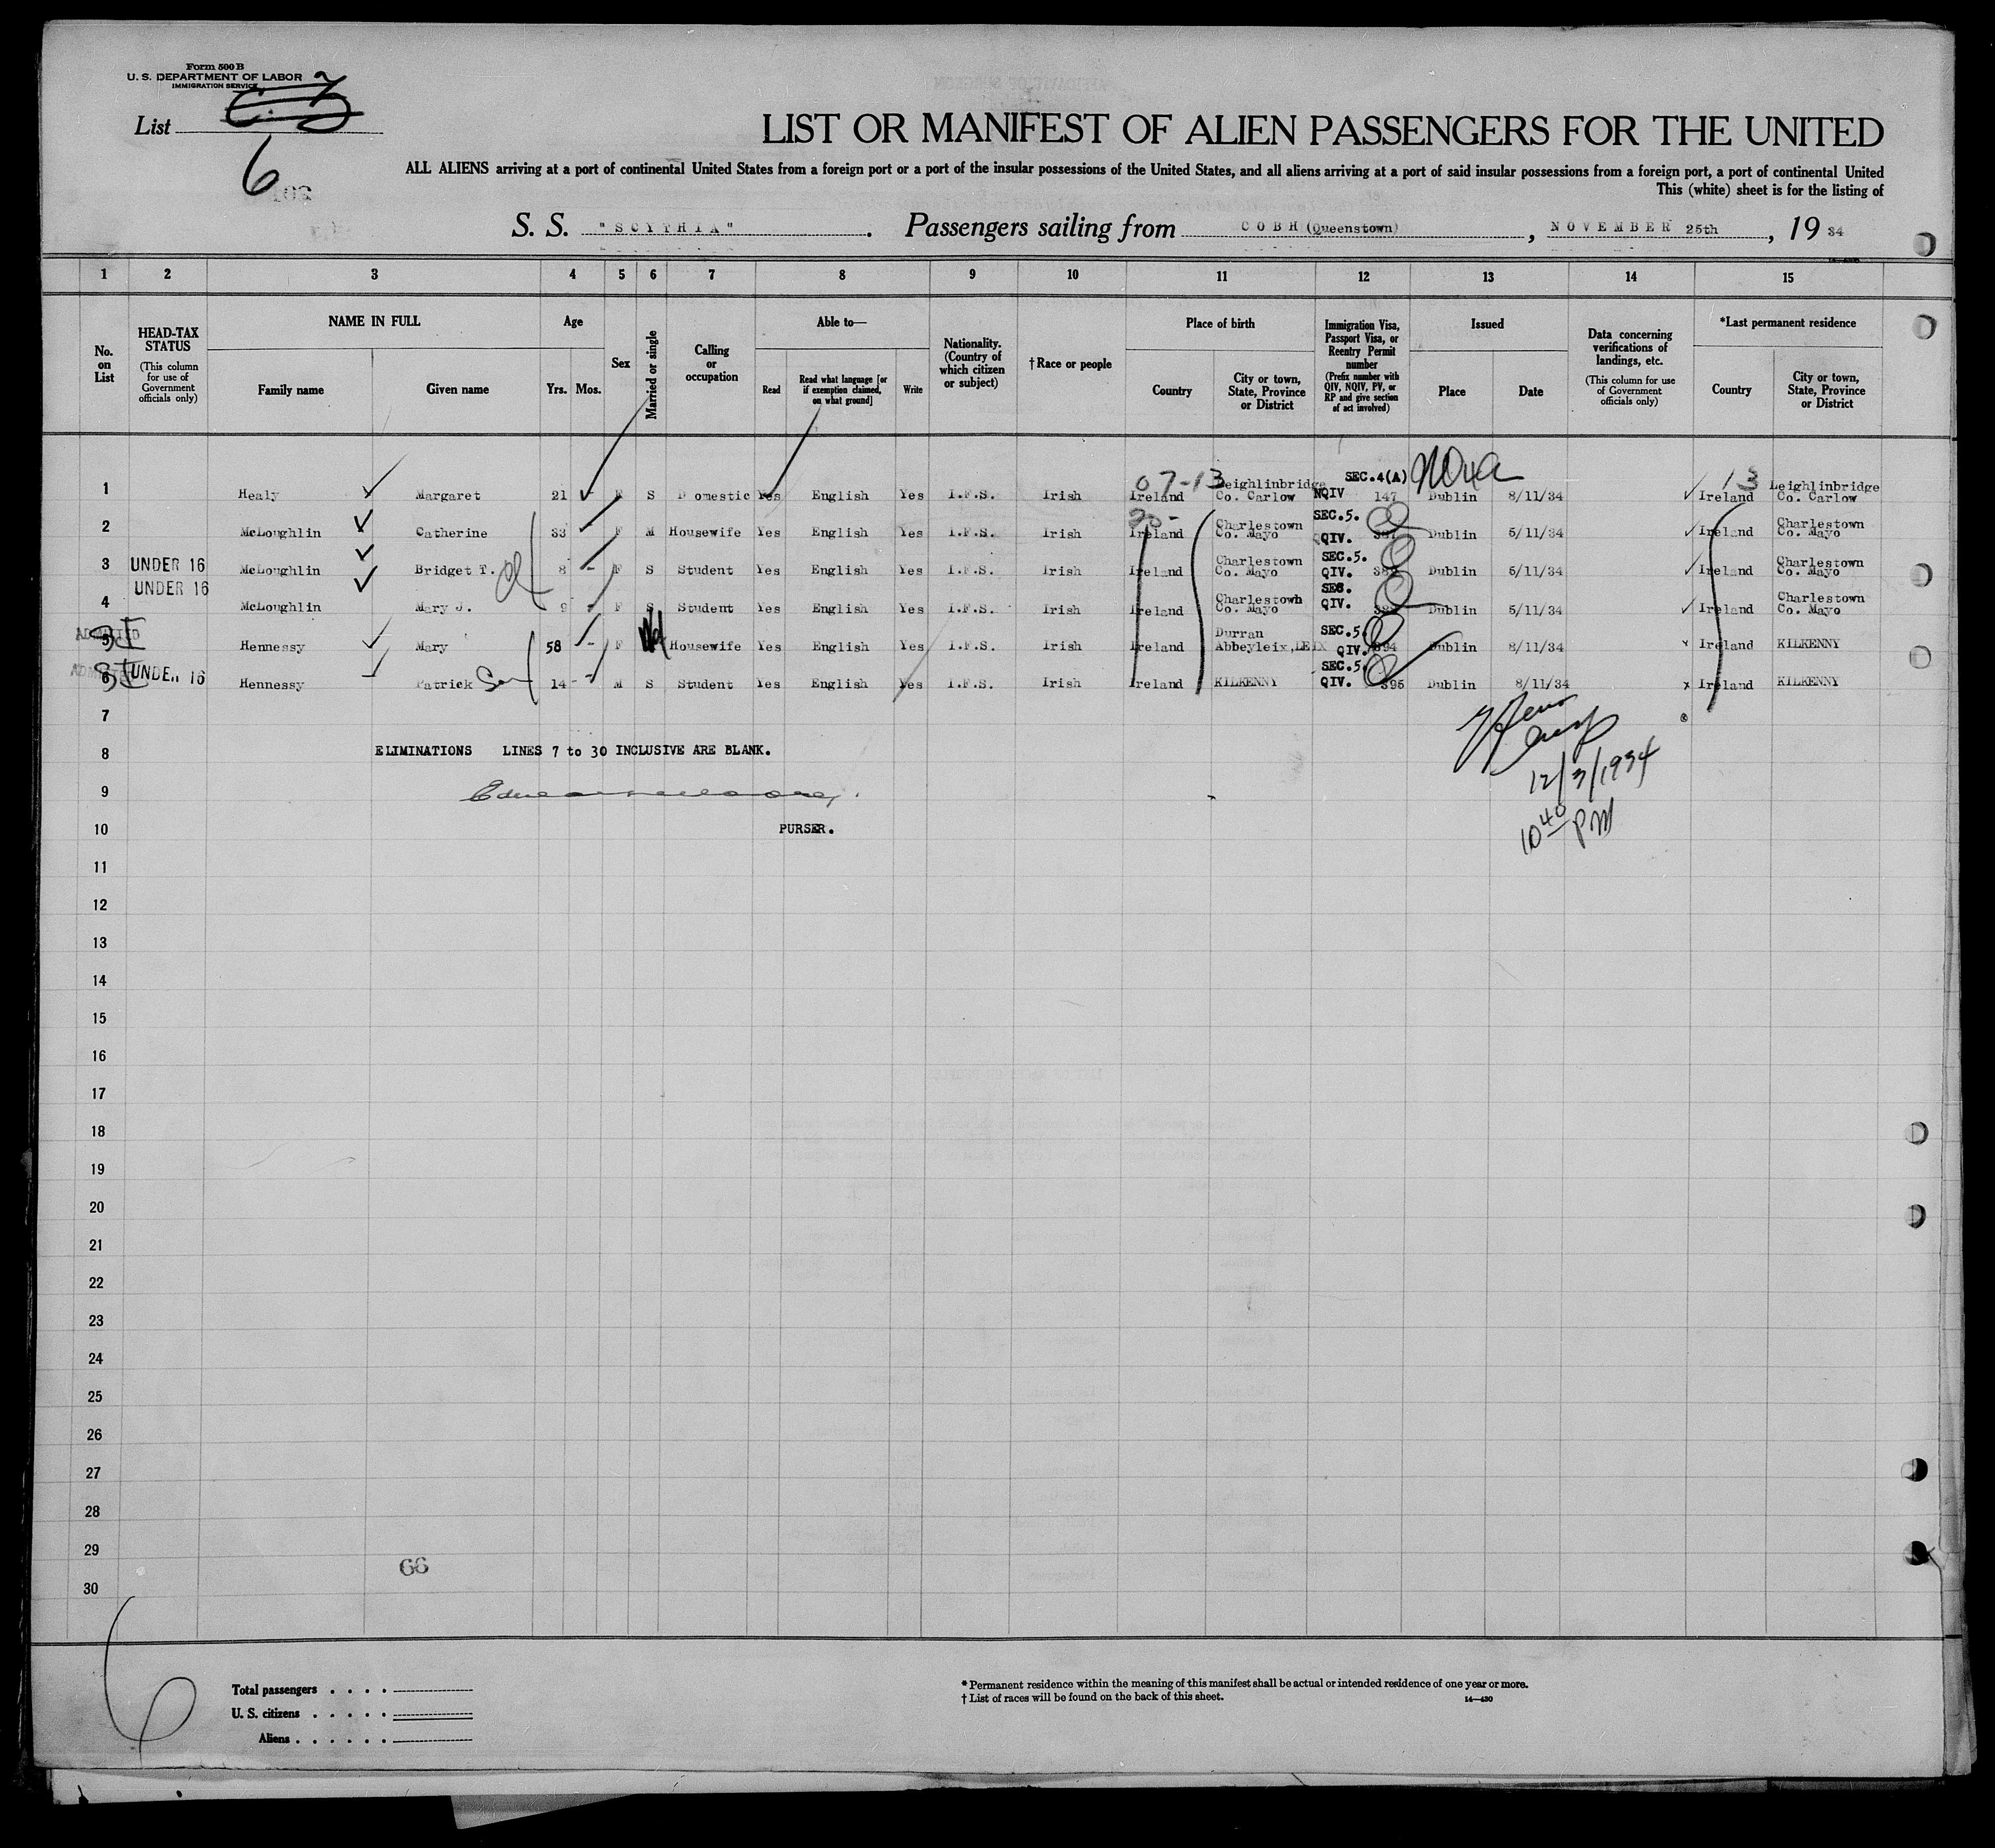 Form 500 B
U. S. DEPARTMENT OF LABOR
IMMIGRATION SERVICE
List
6
LIST OR MANIFEST OF ALIEN PASSENGERS FOR THE UNITED
ALL ALIENS arriving at a port of continental United States from a foreign port or a port of the insular possessions of the United States, and all aliens arriving at a port of said insular possessions from a foreign port, a port of continental United
This (white) sheet is for the listing of
S. S. "SCYTHIA". Passengers sailing from COBH (Queenstown), NOVEMBER 25th, 1934
1 2 3 4 5 6 7 8 9 10 11 12 13 14 15
No. on List
HEAD-TAX STATUS
(This column for use of Government officials only)
NAME IN FULL
Family name Given name
Age
Yrs. Mos.
Sex
Married or single
Calling or occupation
Able to—
Read
Read what language [or if exemption claimed, on what ground]
Write
Nationality. (Country of which citizen or subject)
† Race or people
Place of birth
Country
City or town, State, Province or District
Immigration Visa, Passport Visa, or Reentry Permit number
(Prefix number with QIV, NQIV, PV, or RP and give section of act involved)
Issued
Place Date
Data concerning verifications of landings, etc.
(This column for use of Government officials only)
*Last permanent residence
Country
City or town, State, Province or District
07-13 Leighlinbridge SEC.4(A) 13 Leighlinbridge
1 Healy Margaret 21 - F S Domestic Yes English Yes I.F.S. Irish Ireland Co. Carlow NQIV 147 Dublin 8/11/34 Ireland Co. Carlow
Charlestown SEC.5. Charlestown
2 McLoughlin Catherine 33 - F M Housewife Yes English Yes I.F.S. Irish Ireland Co. Mayo QIV. Dublin 5/11/34 Ireland Co. Mayo
Charlestown SEC.5. Charlestown
3 UNDER 16 McLoughlin Bridget T. 8 - F S Student Yes English Yes I.F.S. Irish Ireland Co. Mayo QIV. Dublin 5/11/34 Ireland Co. Mayo
UNDER 16 Charlestown Charlestown
4 McLoughlin Mary J. 9 - F S Student Yes English Yes I.F.S. Irish Ireland Co. Mayo QIV. Dublin 5/11/34 Ireland Co. Mayo
ADMITTED Durran SEC.5.
5 Hennessy Mary 58 - F Wd Housewife Yes English Yes I.F.S. Irish Ireland Abbeyleix, LEIX QIV. 394 Dublin 8/11/34 Ireland KILKENNY
ADMITTED SEC.5.
6 UNDER 16 Hennessy Patrick Son 14 - M S Student Yes English Yes I.F.S. Irish Ireland KILKENNY QIV. 395 Dublin 8/11/34 Ireland KILKENNY
7
8 ELIMINATIONS LINES 7 to 30 INCLUSIVE ARE BLANK.
12/3/1934
9
10 PURSER.
10 40 PM
11
12
13
14
15
16
17
18
19
20
21
22
23
24
25
26
27
28
29
66
30
Total passengers
U. S. citizens
Aliens
* Permanent residence within the meaning of this manifest shall be actual or intended residence of one year or more.
† List of races will be found on the back of this sheet.
14—430